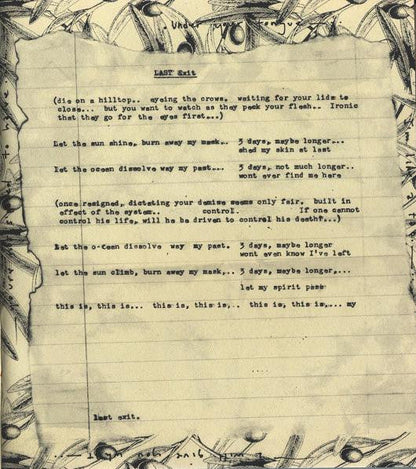 Under your tongue
LAST Exit
(die on a hilltop.. eyeing the crows, waiting for your lids to
close... but you want to watch as they peck your flesh.. Ironic
that they go for the eyes first...)
Let the sun shine, burn away my mask... 3 days, maybe longer...
shed my skin at last
let the ocean dissolve way my past... 3 days, not much longer..
wont ever find me here
(once resigned, dictating your demise seems only fair. built in
effect of the system.. control. If one cannot
control his life, will he be driven to control his death?...)
Let the o-cean dissolve way my past. 3 days, maybe longer
wont even know I've left
let the sun climb, burn away my mask,.. 3 days, maybe longer,...
let my spirit pass
this is, this is... this is, this is,.. this is, this is,... my
last exit.
I will give you